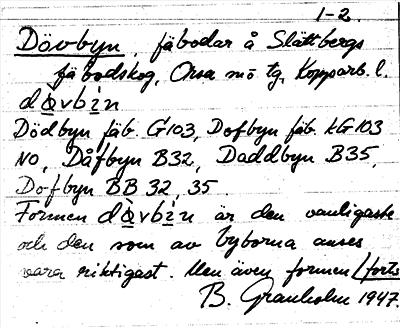 1-2.
Dövbyn, fäbodar å Slättbergs
fäbodskog, Orsa sn tg, Kopparb. l.
dò̱vbi̱n
Dödbyn fäb. G103, Dofbyn fäb. kG103
NO, Dåfbyn B32, Daddbyn B35,
Dofbyn BB 32, 35.
Formen dò̱vbi̱n är den vanligaste
och den som av byborna anses
vara riktigast. Men även formen (forts
B. Granholm 1947.